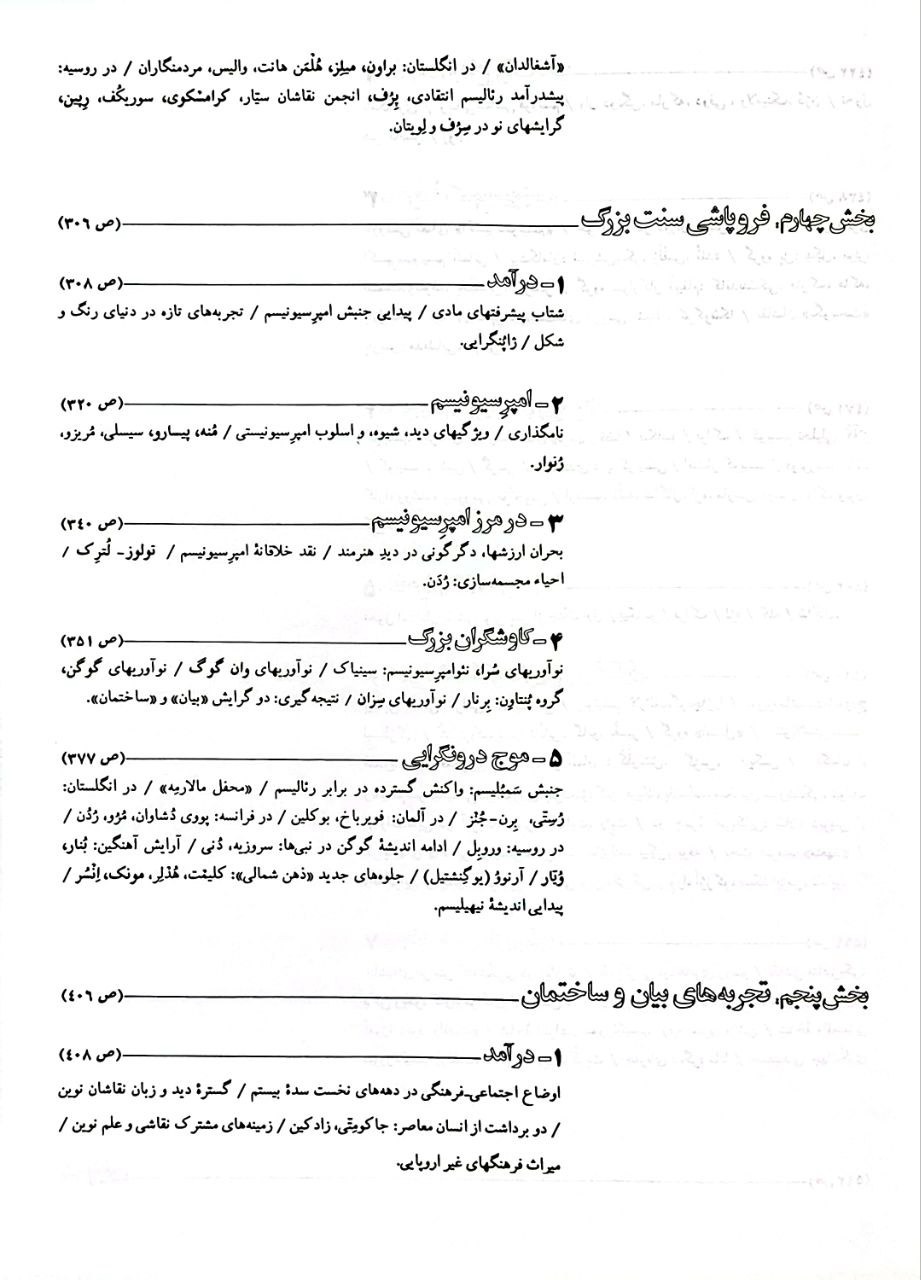 «آشغالدان» / در انگلستان: براون، میلِز، هُلْمَن هانت، والیس، مردمنگاران / در روسیه:
پیشدرآمد رئالیسم انتقادی، پِرُف، انجمن نقاشان سیّار، کرامسْکوی، سوریکُف، رِپین،
گرایشهای نو در سِرُف و لِویتان.
بخش چهارم. فروپاشی سنت بزرگ (ص ۳۰۶)
۱- درآمد (ص ۳۰۸)
شتاب پیشرفتهای مادی / پیدایی جنبش امپرسیونیسم / تجربه‌های تازه در دنیای رنگ و
شکل / ژاپُنگرایی.
۲- امپرِسیونیسم (ص ۳۲۰)
نامگذاری / ویژگیهای دید، شیوه، و اسلوب امپرسیونیستی / مُنه، پیسارو، سیسلی، مُریزو،
رُنوار.
۳- در مرز امپرِسیونیسم (ص ۳۴۰)
بحران ارزشها، دگرگونی در دیدِ هنرمند / نقد خلاقانهٔ امپرِسیونیسم / تولوز- لُترِک /
احیاء مجسمه‌سازی: رُدَن.
۴- کاوشگران بزرگ (ص ۳۵۱)
نوآوریهای سُرا، نئوامپرِسیونیسم: سینیاک / نوآوریهای وان گوگ / نوآوریهای گوگن،
گروه پُنتاوِن: بِرنار / نوآوریهای سِزان / نتیجه‌گیری: دو گرایش «بیان» و «ساختمان».
۵- موج درونگرایی (ص ۳۷۷)
جنبش سَمبُلیسم: واکنش گسترده در برابر رئالیسم / «محفل مالارمِه» / در انگلستان:
رُسِتّی، بِرن-جُنْز / در آلمان: فویرباخ، بوکلین / در فرانسه: پووی دُشاوان، مُرُو، رُدُن /
در روسیه: وروبِل / ادامه اندیشهٔ گوگن در نبی‌ها: سروزیه، دُنی / آرایش آهنگین: بُنار،
وُیّار / آرنوْوُ (یوگِنشتیل) / جلوه‌های جدید «ذهن شمالی»: کلیمْت، هُدْلِر، مونک، اِنْسُر /
پیدایی اندیشهٔ نیهیلیسم.
بخش پنجم. تجربه‌های بیان و ساختمان (ص ۴۰۶)
۱- درآمد (ص ۴۰۸)
اوضاع اجتماعی-فرهنگی در دهه‌های نخست سدهٔ بیستم / گسترهٔ دید و زبان نقاشان نوین
/ دو برداشت از انسان معاصر: جاکومِتّی، زادکین / زمینه‌های مشترک نقاشی و علم نوین /
میراث فرهنگهای غیر اروپایی.